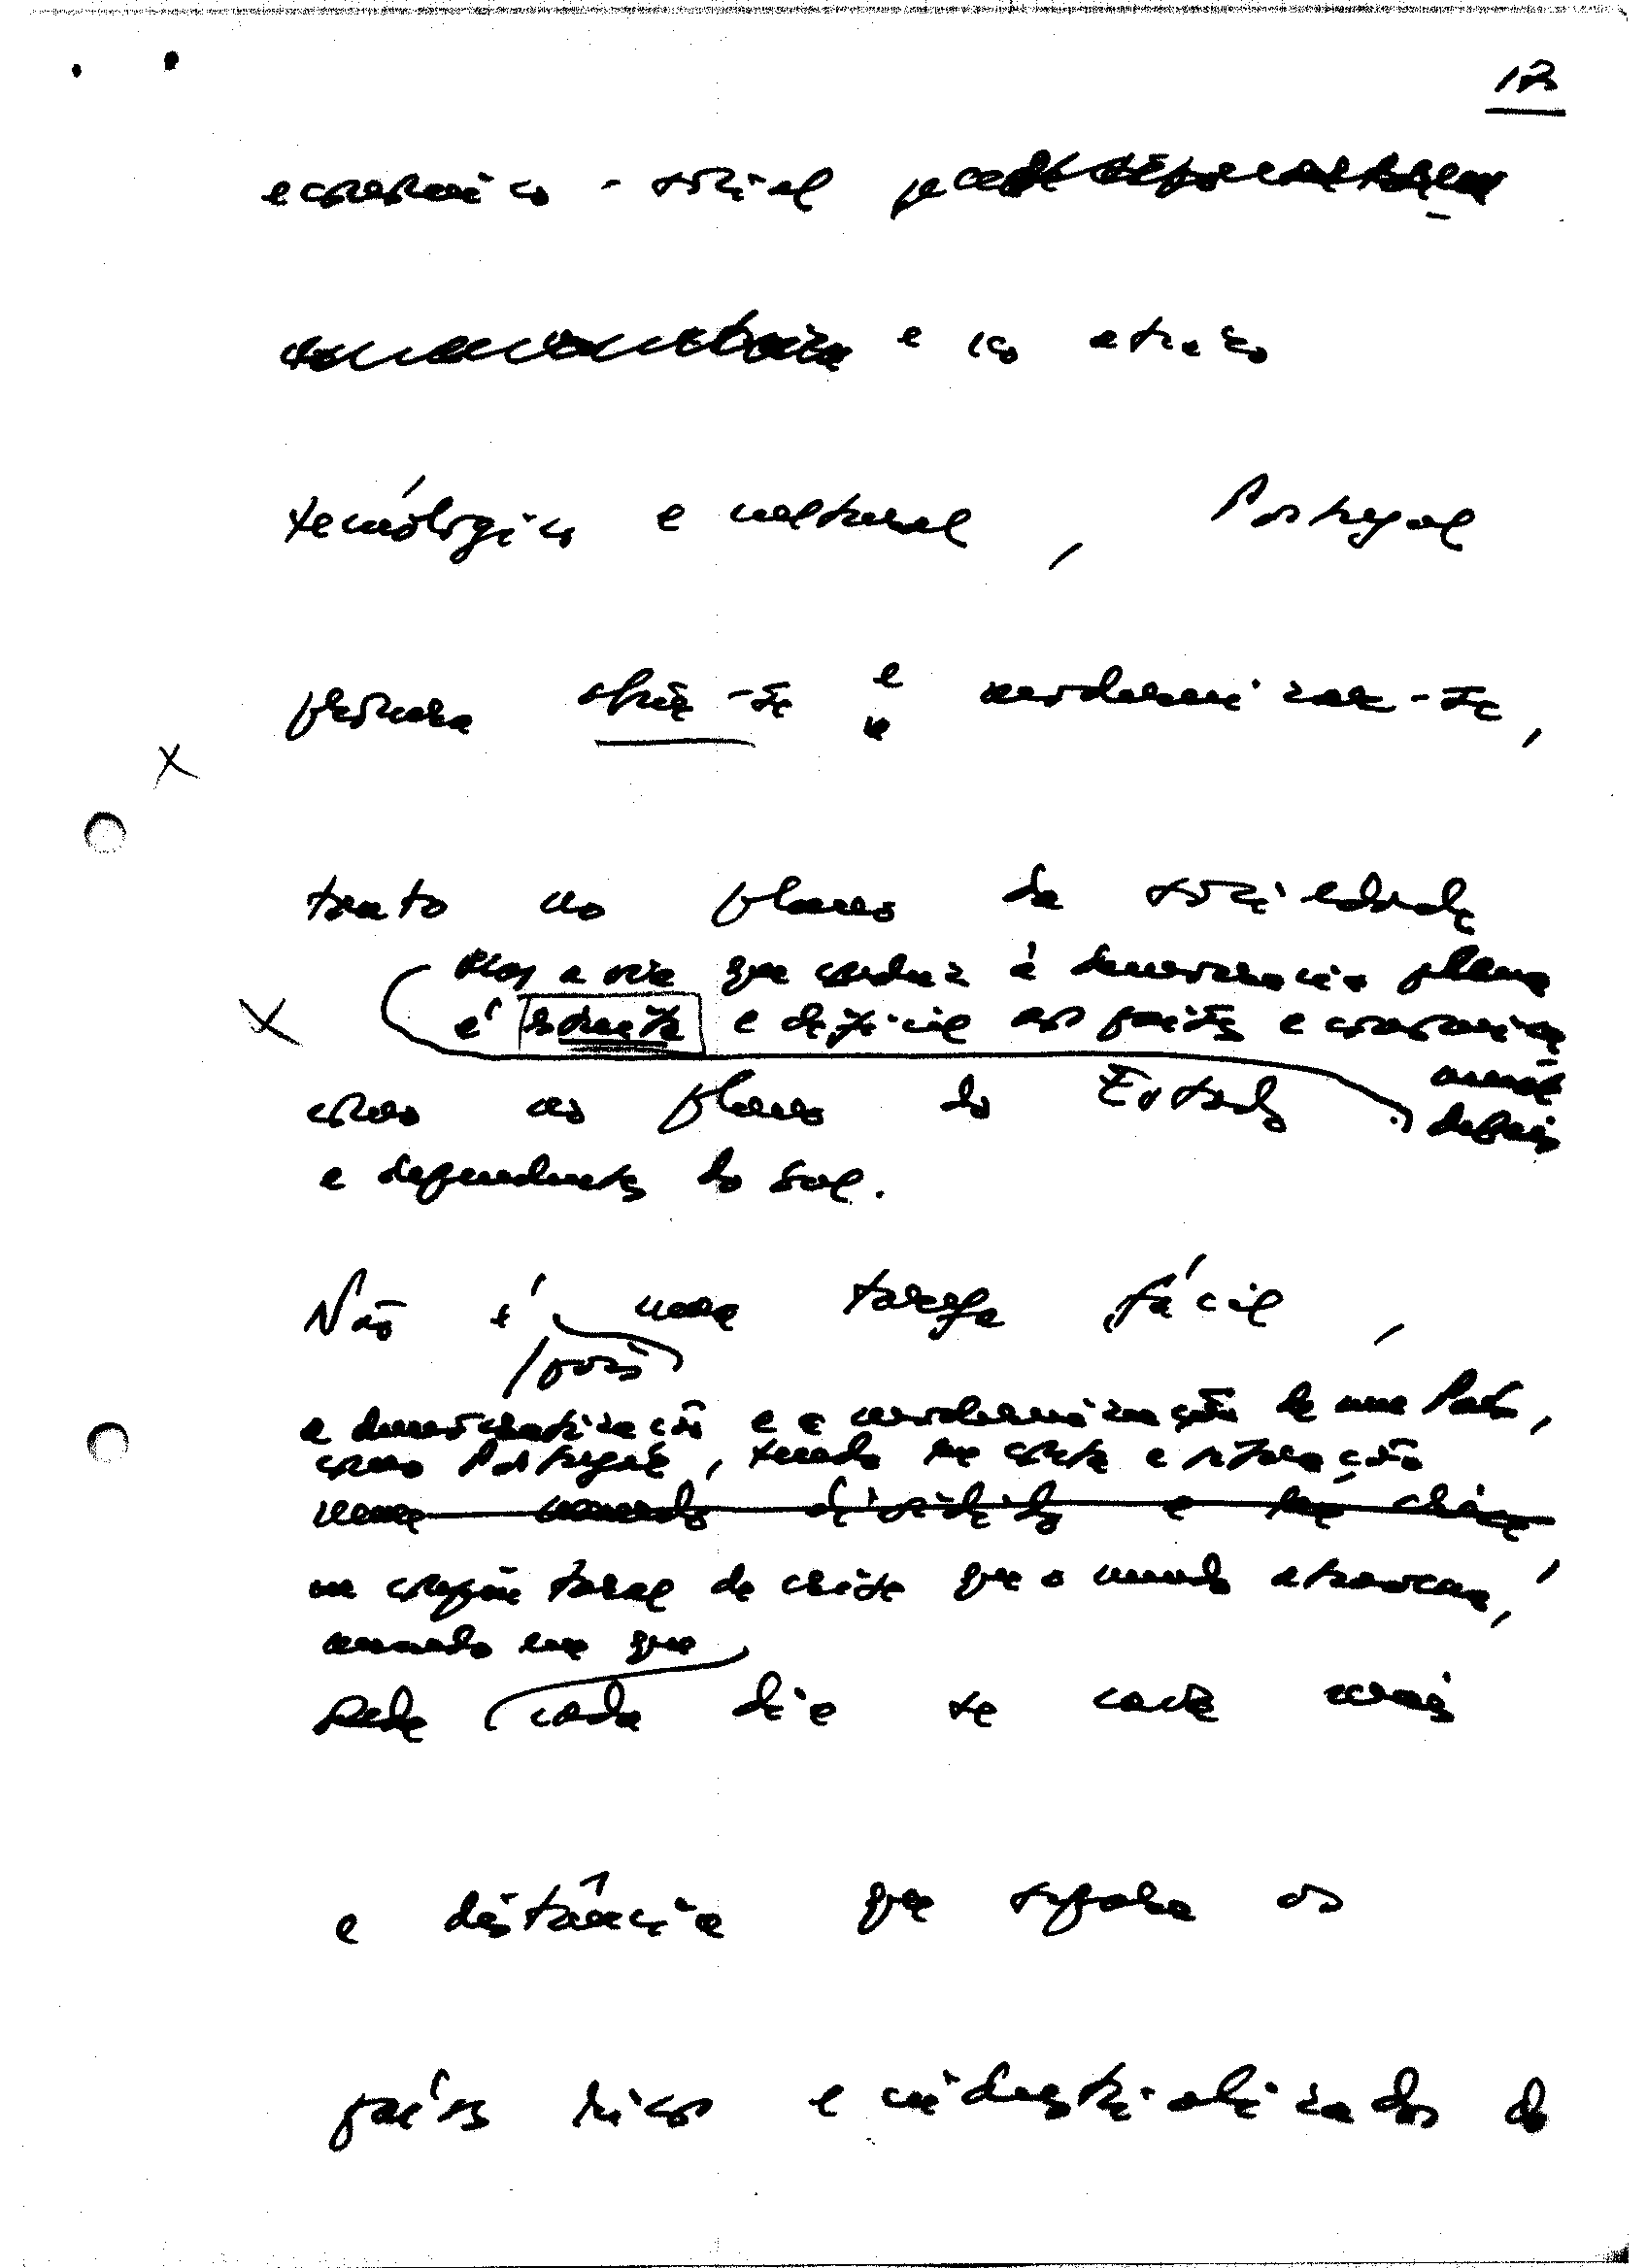 12
económico-social
e ao atraso
tecnológico e cultural, Portugal
procura abrir-se e modernizar-se,
tanto no plano da sociedade
Mas a via que conduz à democracia plena
é estreita e difícil nos países economica
mente
como no plano do Estado. débeis
e dependentes do Sul.
Não é uma tarefa fácil,
pois
a democratização e a modernização de um País,
como Portugal, tendo em conta a situação
num mundo dividido e
na conjuntura de crise que o mundo atravessa,
mundo em que
onde cada dia se cava mais
a distância que separa os
países ricos e industrializados do